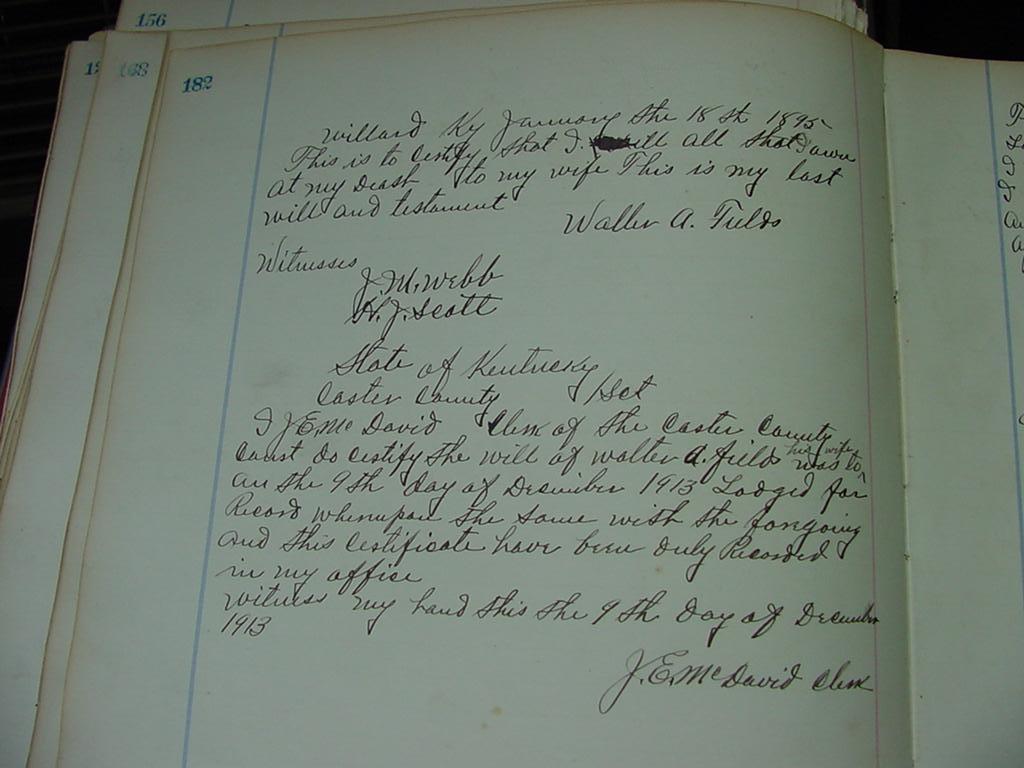 156
168
182
Willard Ky January the 18 th 1895
This is to Certify that I will all that I own
at my Death to my wife This is my last
will and testament
Walter A. Fields
Witnesses
J. M. Webb
H. J. Scott
State of Kentucky
Carter County } Sct
I J. E. McDavid Clerk of the Carter County
Court do certify the will of Walter A. field to his wife was
on the 9th day of December 1913 Lodged for
Record whereupon the same with the foregoing
and this certificate have been duly Recorded
in my office
Witness my hand this the 9th Day of December
1913
J. E. McDavid Clerk